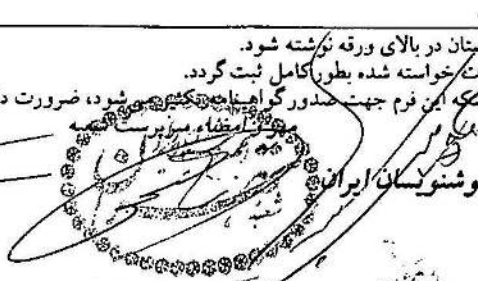 ستان در بالای ورقه نوشته شود.
ت خواسته شده بطور کامل ثبت گردد.
که این فرم جهت صدور گواهینامه تکثیر می‌شود، ضرورت د
مهر و امضاء سرپرست شعبه
وشنویسان ایران